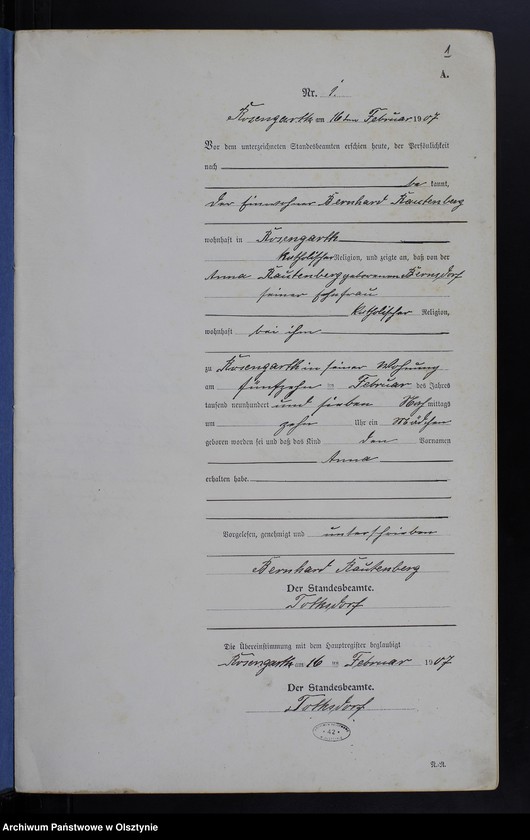 1
A.
Nr. 1.
Rosengarth am 16ten Februar 1907
Vor dem unterzeichneten Standesbeamten erschien heute, der Persönlichkeit
nach
be kannt,
der Einwohner Bernhard Rautenberg
wohnhaft in Rosengarth
katholischer Religion, und zeigte an, daß von der
Anna Rautenberg geborenen Bernsdorf
seiner Ehefrau
katholischer Religion,
wohnhaft bei ihm
zu Rosengarth in seiner Wohnung
am fünfzehn ten Februar des Jahres
tausend neunhundert und sieben Nachmittags
um zehn Uhr ein Mädchen
geboren worden sei und daß das Kind den Vornamen
Anna
erhalten habe.
Vorgelesen, genehmigt und unterschrieben
Bernhard Rautenberg
Der Standesbeamte.
Tolksdorf
Die Übereinstimmung mit dem Hauptregister beglaubigt
Rosengarth am 16 ten Februar 1907
Der Standesbeamte.
Tolksdorf
42
Archiwum Państwowe w Olsztynie